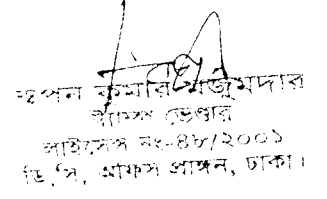 স্বপন কুমার মজুমদার
স্ট্যাম্প ভেণ্ডার
লাইসেন্স নং-৪৮/২০০১
ডি,সি, অফিস প্রাঙ্গন, ঢাকা।